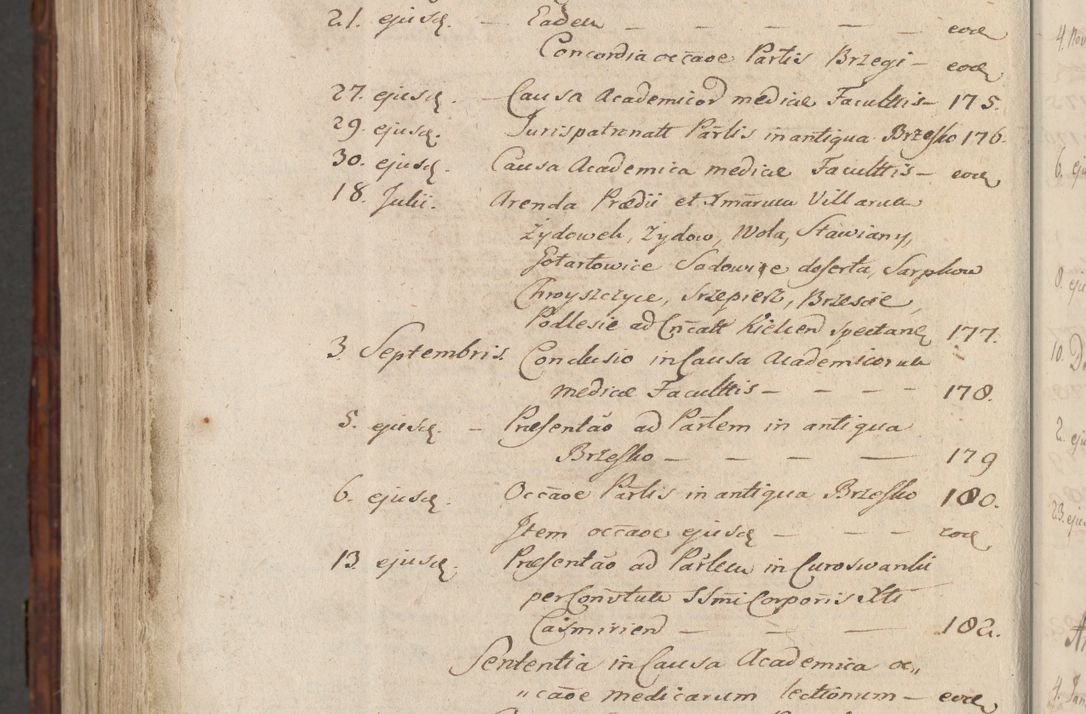 21. ejusq. — Eadem — — — — eod
Concordia occaōe Partis Brzegi — eod
27. ejusq. — Causa Academicor medicæ Facultis — 175.
29. ejusq. Jurispatronatt Partis in antiqua Brzesko 176.
30. ejusq. Causa Academica medicæ Facultis — eod
18. Julii. Arenda Prædii et Xmārum Villarum
Żydowek, Żydow, Wola, Stawiany,
Gotartowice Sadowice deserta, Sarpkow
Chroyszczyce, Srzepiesz, Brzescie,
Podlesie ad Cn̄catt Kielcen spectan 177.
3. Septembris. Conclusio in Causa Academicorum
medicæ Facultis — — — — 178.
5. ejusq. — Præsentāo ad Partem in antiqua
Brzesko — — — — 179
6. ejusq. Occāoe Partis in antiqua Brzesko 180.
Item occāoe ejusq — — — eod
13. ejusq. Præsentāo ad Partem in Curoswanki
per Conv̄tum SSmi Corporis Xti
Casimirien — — — 182.
Sententia in Causa Academica oc„
„cāoe medicarum lectionum — eod
4. Nov
6. eju
0. eju
10. D
2. eju
23. ejus
4. Jan